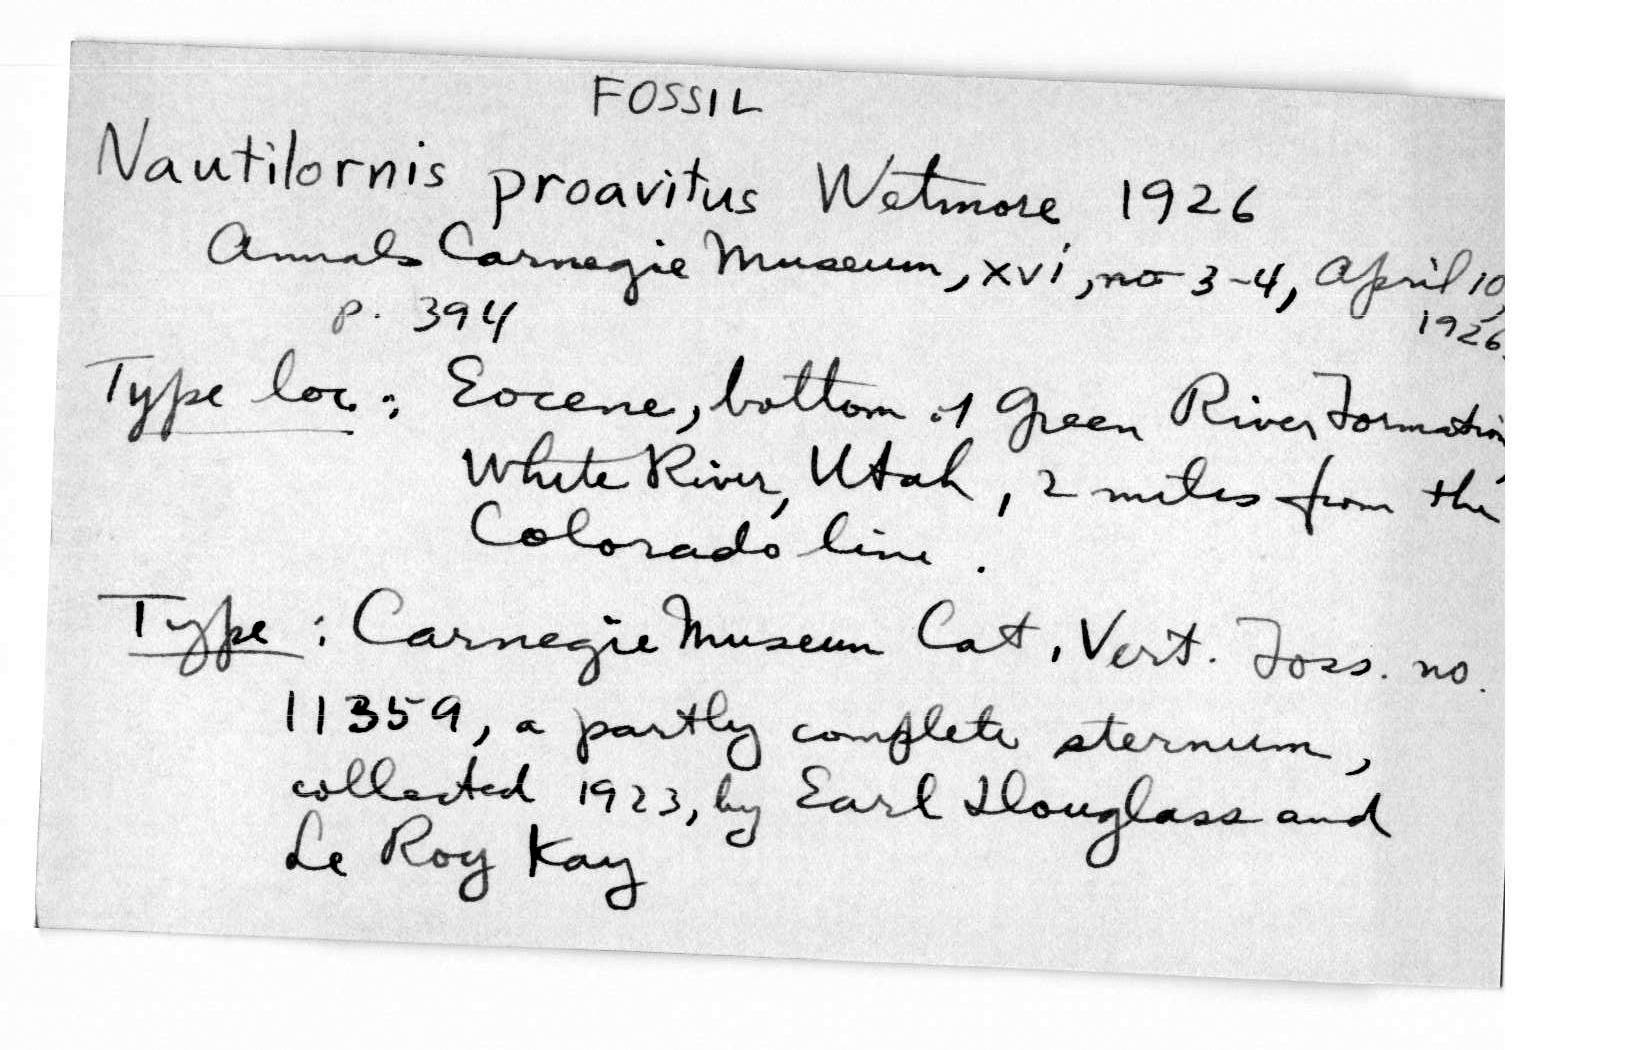 FOSSIL
Nautilornis proavitus Wetmore 1926
Annals Carnegie Museum, xvi, no 3-4, April 10,
p. 394 1926.
Type loc.: Eocene, bottom of Green River Formation,
White River, Utah, 2 miles from the
Colorado line.
Type: Carnegie Museum Cat. Vert. Foss. no.
11359, a partly complete sternum,
collected 1923, by Earl Douglass and
Le Roy Kay